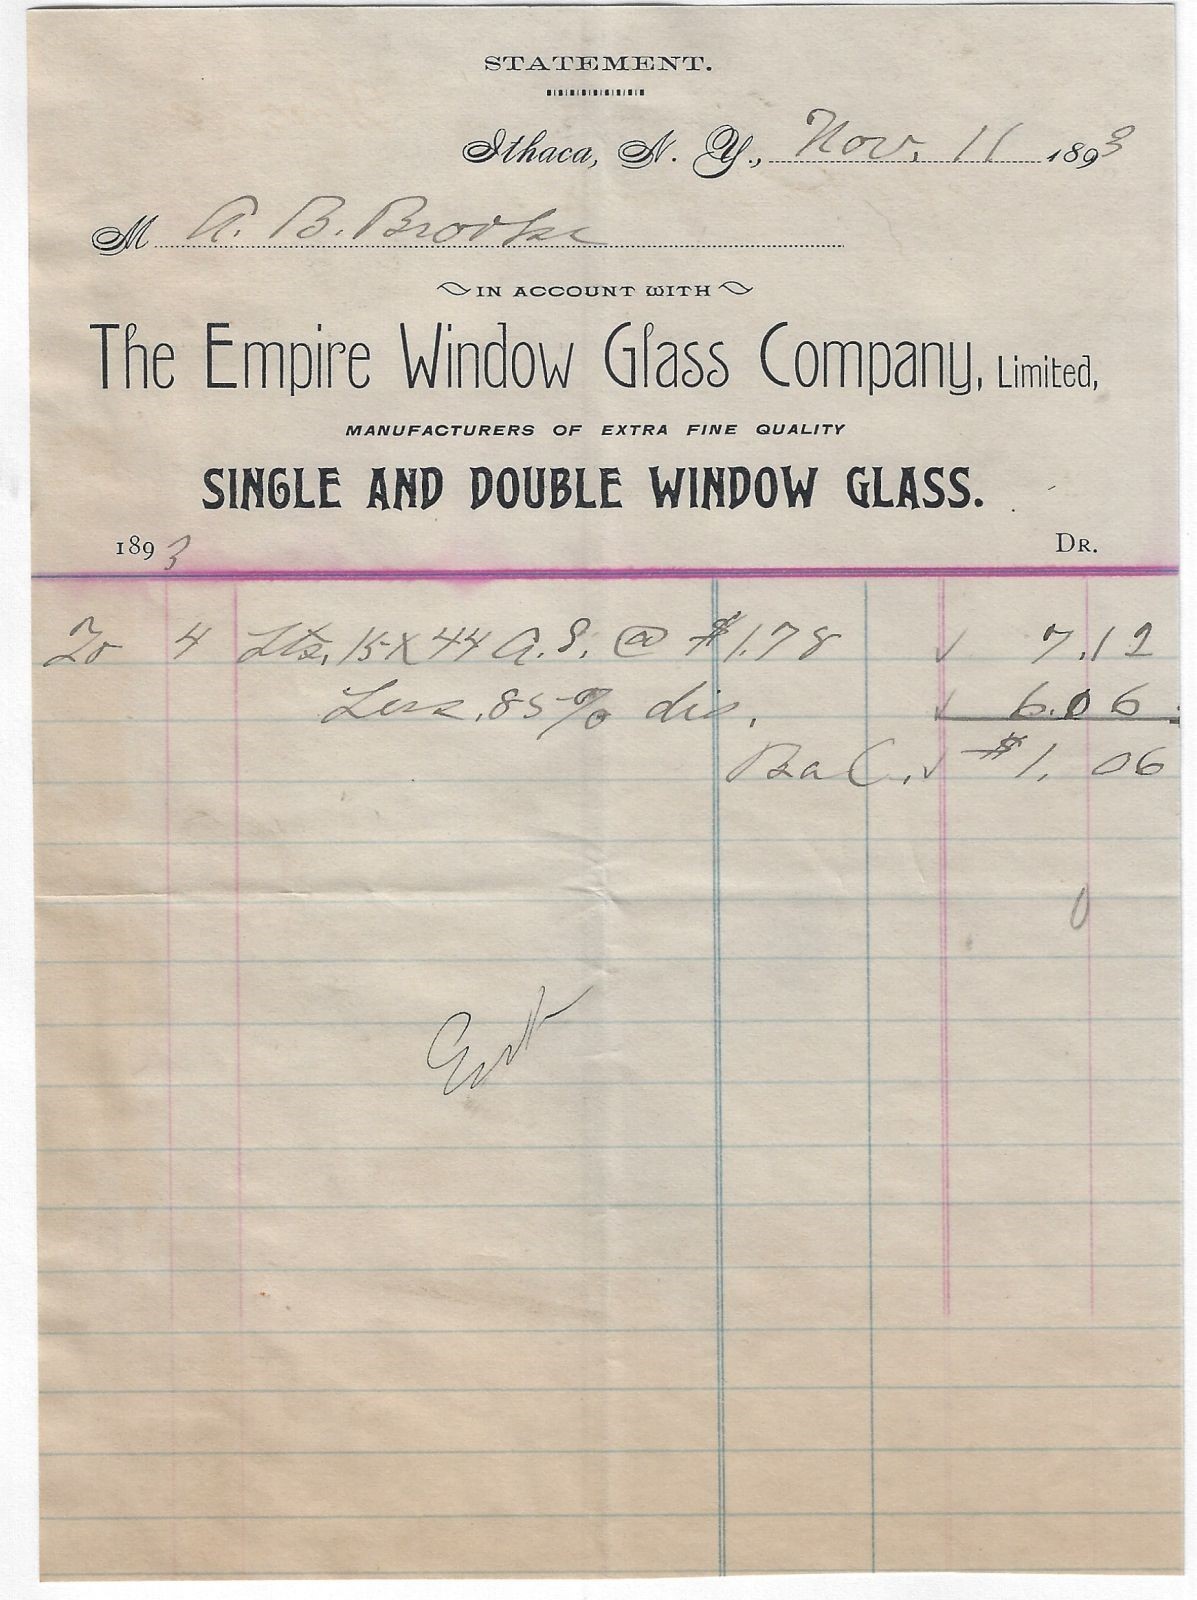 STATEMENT.
Ithaca, N. Y., Nov. 11 1893
M A. B. Brooks
IN ACCOUNT WITH
The Empire Window Glass Company, Limited,
MANUFACTURERS OF EXTRA FINE QUALITY
SINGLE AND DOUBLE WINDOW GLASS.
1893 DR.
To 4 Lts. 15 X 44 A. S. @ $1.78 √ 7.12
Less. 85% dis. √ 6.06
Bal. √ $1.06
0